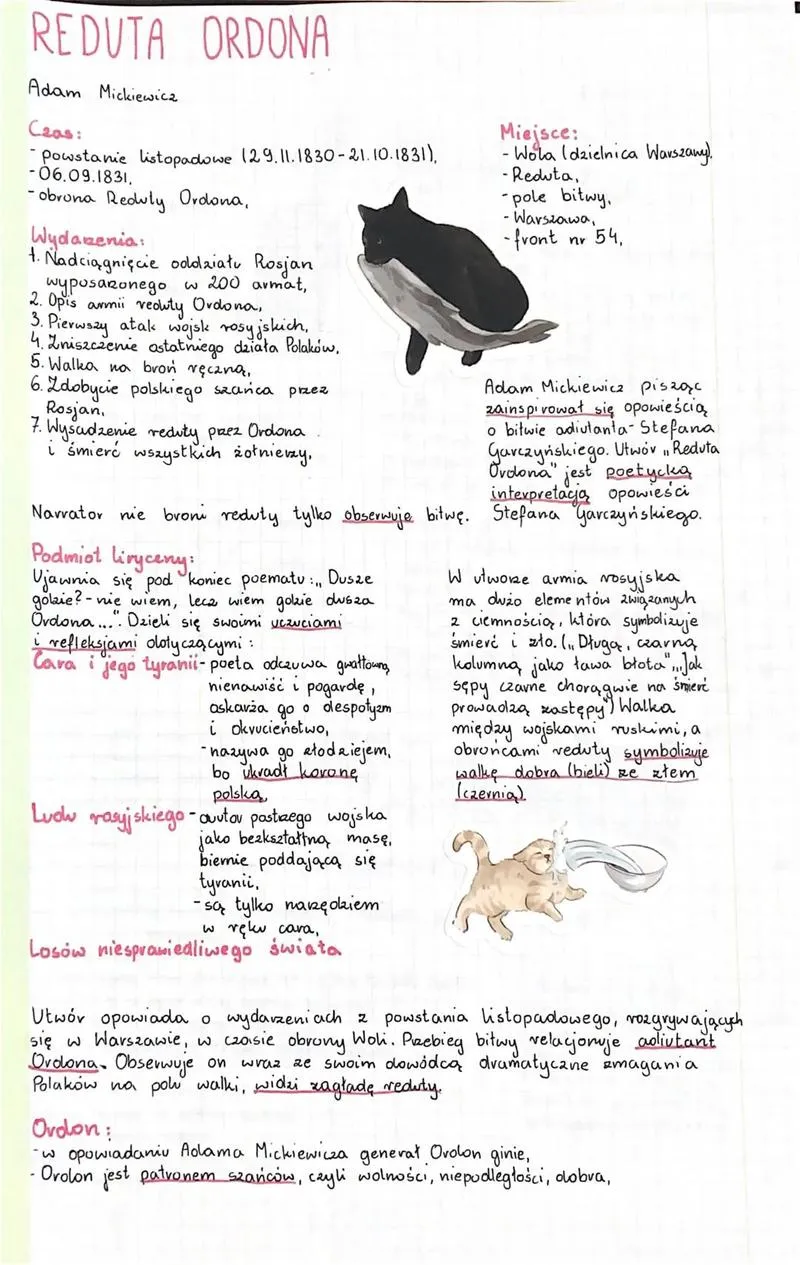 REDUTA ORDONA
Adam Mickiewicz
Czas:
- powstanie listopadowe (29.11.1830-21.10.1831),
- 06.09.1831,
- obrona Reduty Ordona,
Miejsce:
- Wola (dzielnica Warszawy),
- Reduta,
- pole bitwy,
- Warszawa,
- front nr 54,
Wydarzenia:
1. Nadciągnięcie oddziału Rosjan
wyposażonego w 200 armat,
2. Opis armii reduty Ordona,
3. Pierwszy atak wojsk rosyjskich,
4. Zniszczenie ostatniego działa Polaków,
5. Walka na broń ręczną,
6. Zdobycie polskiego szańca przez
Rosjan,
7. Wysadzenie reduty przez Ordona
i śmierć wszystkich żołnierzy,
Adam Mickiewicz pisząc
zainspirował się opowieścią
o bitwie adiutanta- Stefana
Garczyńskiego. Utwór „Reduta
Ordona" jest poetycką
interpretacją opowieści
Stefana Garczyńskiego.
Narrator nie broni reduty tylko obserwuje bitwę.
Podmiot liryczny:
Ujawnia się pod koniec poematu: „Dusze
gdzie? - nie wiem, lecz wiem gdzie dusza
Ordona...". Dzieli się swoimi uczuciami
i refleksjami dotyczącymi:
Cara i jego tyranii - poeta odczuwa gwałtowną
nienawiść i pogardę,
oskarża go o despotyzm
i okrucieństwo,
- nazywa go złodziejem,
bo ukradł koronę
polską,
Ludu rosyjskiego - autor postrzega wojska
jako bezkształtną masę,
biernie poddającą się
tyranii,
- są tylko narzędziem
w ręku cara,
Losów niesprawiedliwego świata
W utworze armia rosyjska
ma dużo elementów związanych
z ciemnością, która symbolizuje
śmierć i zło. („Długą, czarną
kolumną jako ława błota", „Jak
sępy czarne chorągwie na śmierć
prowadzą zastępy") Walka
między wojskami ruskimi, a
obrońcami reduty symbolizuje
walkę dobra (bieli) ze złem
(czernią).
Utwór opowiada o wydarzeniach z powstania listopadowego, rozgrywających
się w Warszawie, w czasie obrony Woli. Przebieg bitwy relacjonuje adiutant
Ordona. Obserwuje on wraz ze swoim dowódcą dramatyczne zmagania
Polaków na polu walki, widzi zagładę reduty.
Ordon:
- w opowiadaniu Adama Mickiewicza generał Ordon ginie,
- Ordon jest patronem szańców, czyli wolności, niepodległości, dobra,